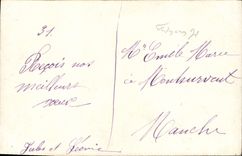 31.
Reçois nos
meilleurs
vœux
Jules et
Mr Emile Marie
à Montsurvent
Manche